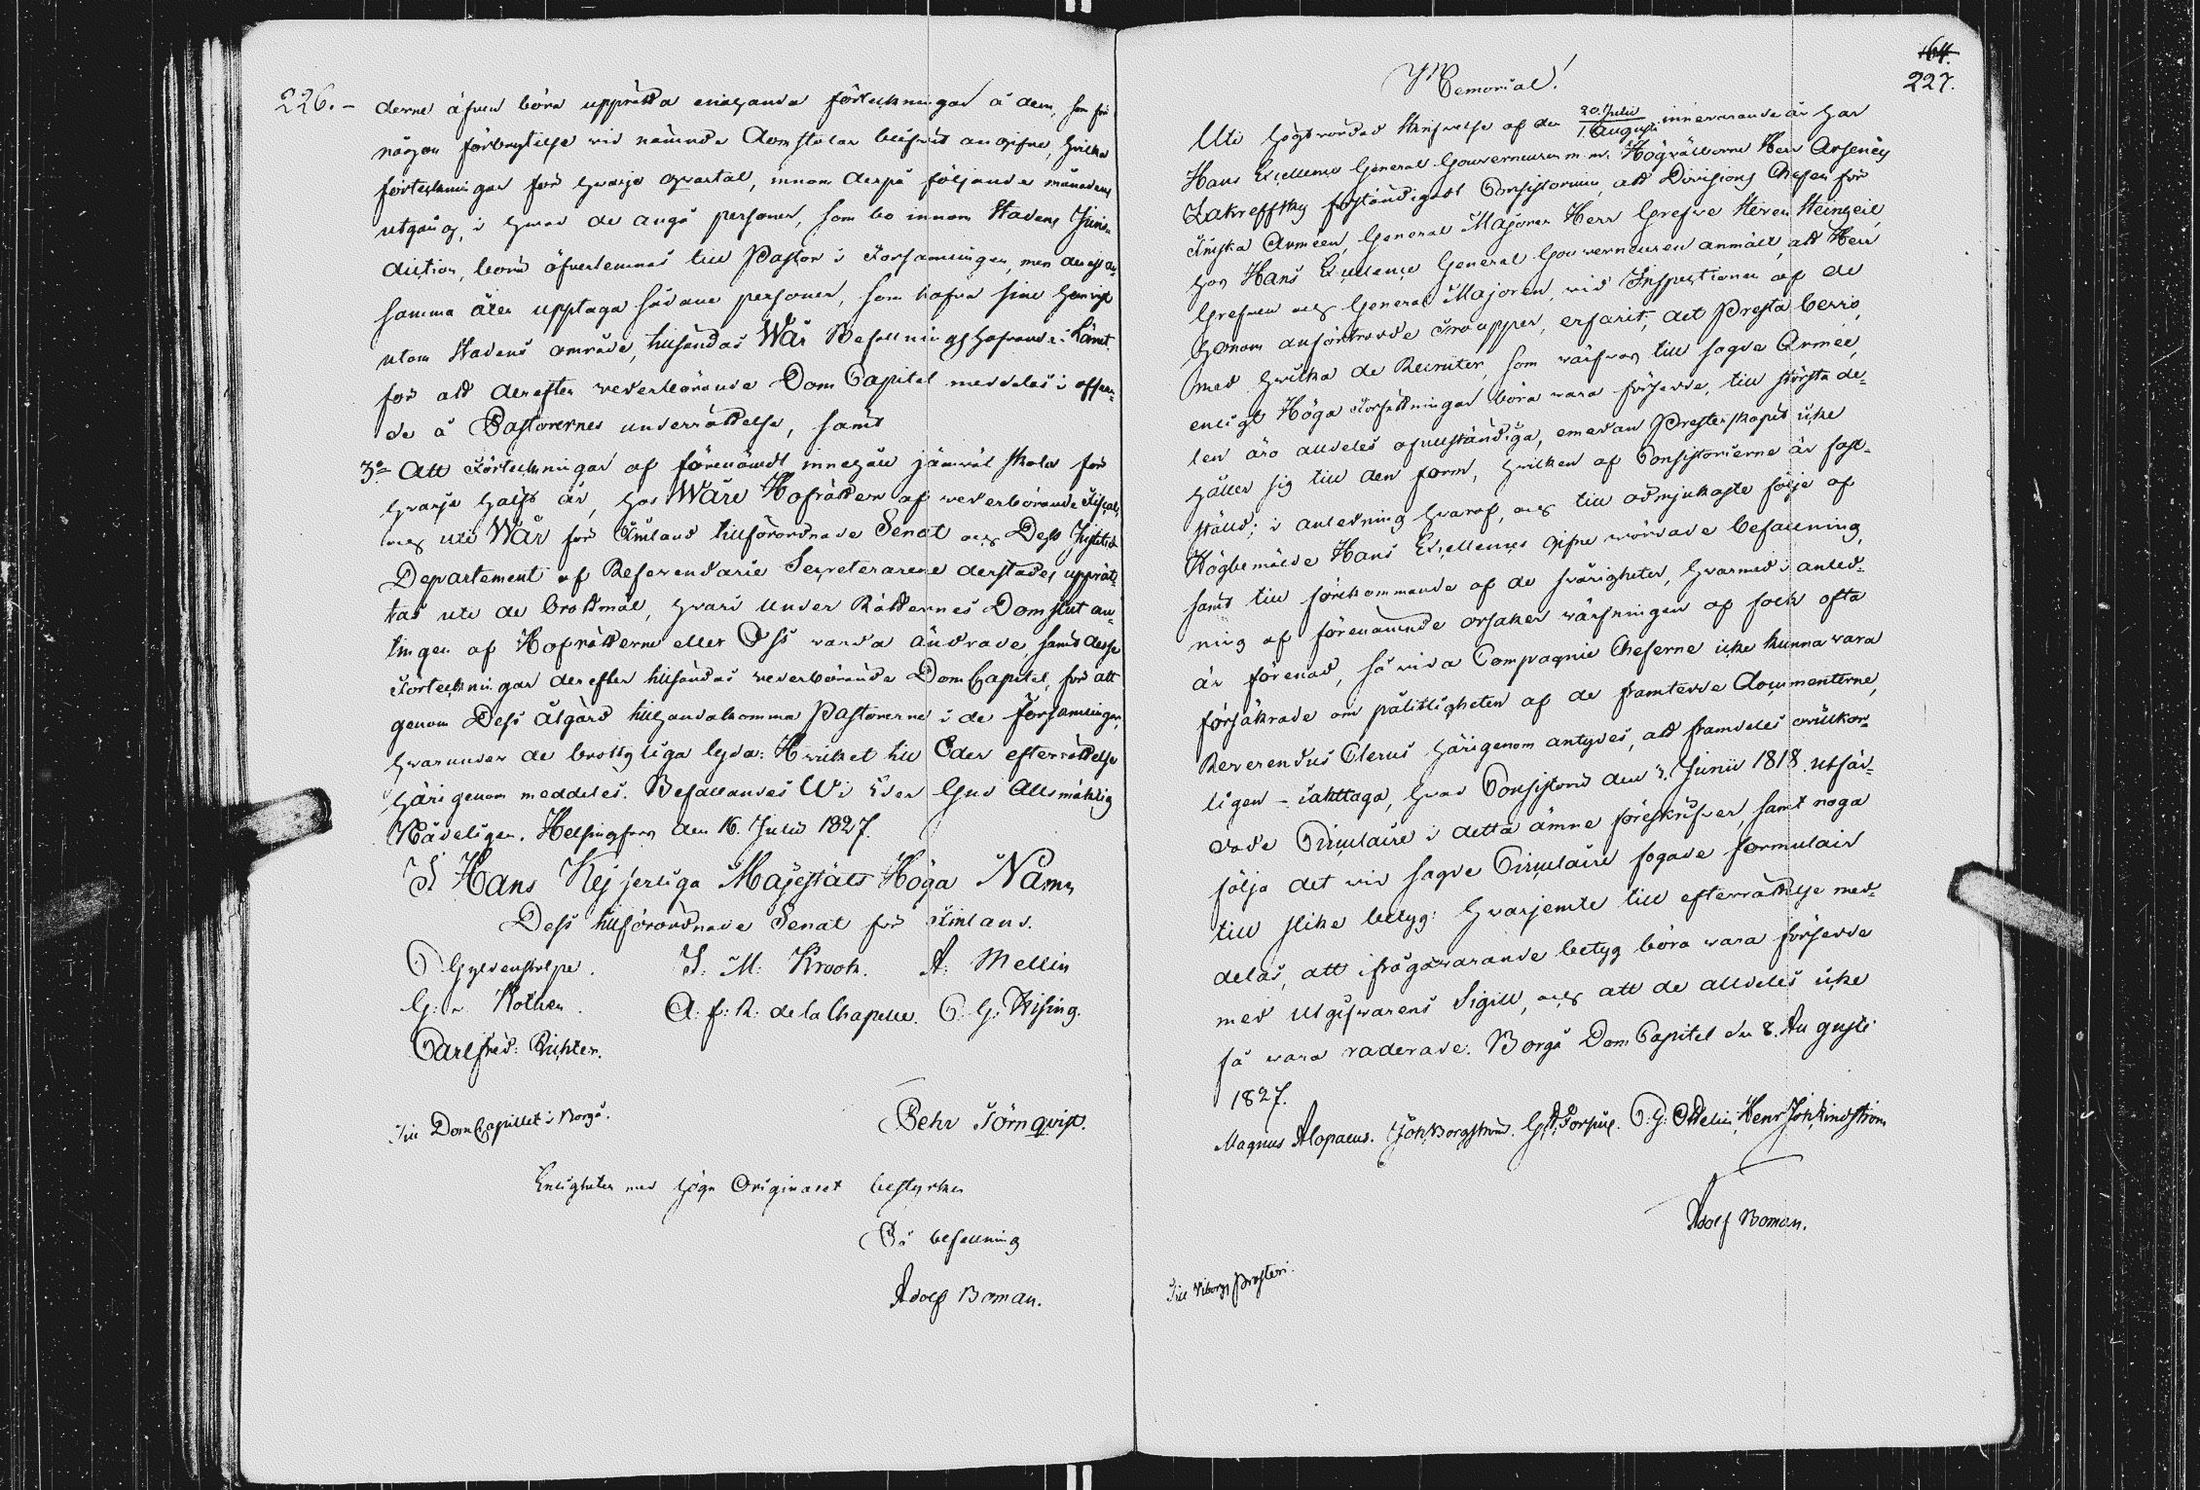 226.-
derne äfven böra upprätta enahanda förteckningar å dem, som för
någon förbrytelse vid nämnde Domstolar blifvit angifne, hvilka
förteckningar för hvarje qvartal, innom derpå följande månadens
utgång, i hvad de angå personer, som bo innom Stadens Juris-
diction, böra öfverlemnas till Pastor i Församlingen, men deremot
samma åter upptaga sådane personer, som hafva sine hemvist
utom Stadens område, tillsändas Wår Befallningshafvande i Länet
för att derefter vederbörande Dom Capitel meddelas i afseen-
de å Pastorernes underrättelse, samt
3:o Att Förteckningar af förenämdt innehåll jämväl skola för
hvarje halft år, hos Wåre Hofrätter af vederbörande Fiscal,
och uti Wår för Finland tillförordnade Senat och Dess Justitiæ
Departement af Referendarie Secreterarene derstädes upprät-
tas uti de brottmål, hvari Under Rätternes Domslut an-
tingen af Hofrätterne eller Oss varda ändrade, samt desse
Förteckningar derefter tillsändas vederbörande Dom Capitel, för att
genom Dess åtgärd tillhandakomma Pastorerne i de församlingar,
hvarunder de brottsliga lyda: Hvilket till Eder efterrättelse
härigenom meddeles. Befallandes Wi Eder Gud Allsmäktig
Nådeligen. Helsingfors den 16. Julii 1827.
I Hans Kejserliga Majestäts Höga Namn
Dess tillförordnade Senat för Finland.
C. Gyldenstolpe. I. M. Krook. A. Mellin
G: v: Rothen. A. f: R: de la Chapelle. C. G. Hising.
Carl fred: Richter.
Till DomCapitlet i Borgå.
Pehr Törnqvist.
Enligheten med höga Originalet bestyrker
På befallning
Adolf Boman.
164.
227.
Memorial!
Uti högtvördad skrifvelse af den 20. Julii / 1. Augusti innevarande år har
Hans Excellence General Gouverneuren m. m. Högvälborne Herr Arseney
Zakreffsky förständigatt Consistorium, att Divisions Chefen för
Finska Arméen, General Majoren Herr Grefve Steven Steinheil,
hos Hans Excellence General Gouverneuren anmält, att Herr
Grefven och General Majoren, vid Inspectionen af de
honom anförtrodde Troupper, erfarit, att Presta bevis,
med hvilka de Recruter, som värfvas till sagde Armée,
enligt Höga Författningar böra vara försedde, till största de-
len äro alldeles ofullständiga, emedan Presterskapet icke
håller sig till den form, hvilken af Consistorierne är fast-
ställd; i anledning hvaraf, och till ödmjukaste följe af
Högbemälde Hans Excellences gifne vördade befallning,
samt till förekommande af de svårigheter, hvarmed i anled-
ning af förenämnde orsaker värfningen af folk ofta
är förenad, så vida Compagnie Cheferne icke kunna vara
försäkrade om pålitligheten af de framtedde Documenterne,
Reverendus Clerus härigenom antydes, att framdeles ovillkor-
ligen iakttaga, hvad Consistorii den 3. Junii 1818. utfär-
dade Circulaire i detta ämne föreskrifver, samt noga
följa det vid sagde Circulaire fogade formulair
till slike betyg: Hvarjemte till efterrättelse med-
delas, att ifrågavarande betyg böra vara försedde
med Utgifvarens Sigill, och att de alldeles icke
få vara raderade. Borgå Dom Capitel den 8. Augusti
1827.
Magnus Alopaeus. Joh. Borgström. G. A. Forsius. C. G. Ottelin. Henr. Joh. Lindström
Adolf Boman.
Till Wiborgs Prosteri.